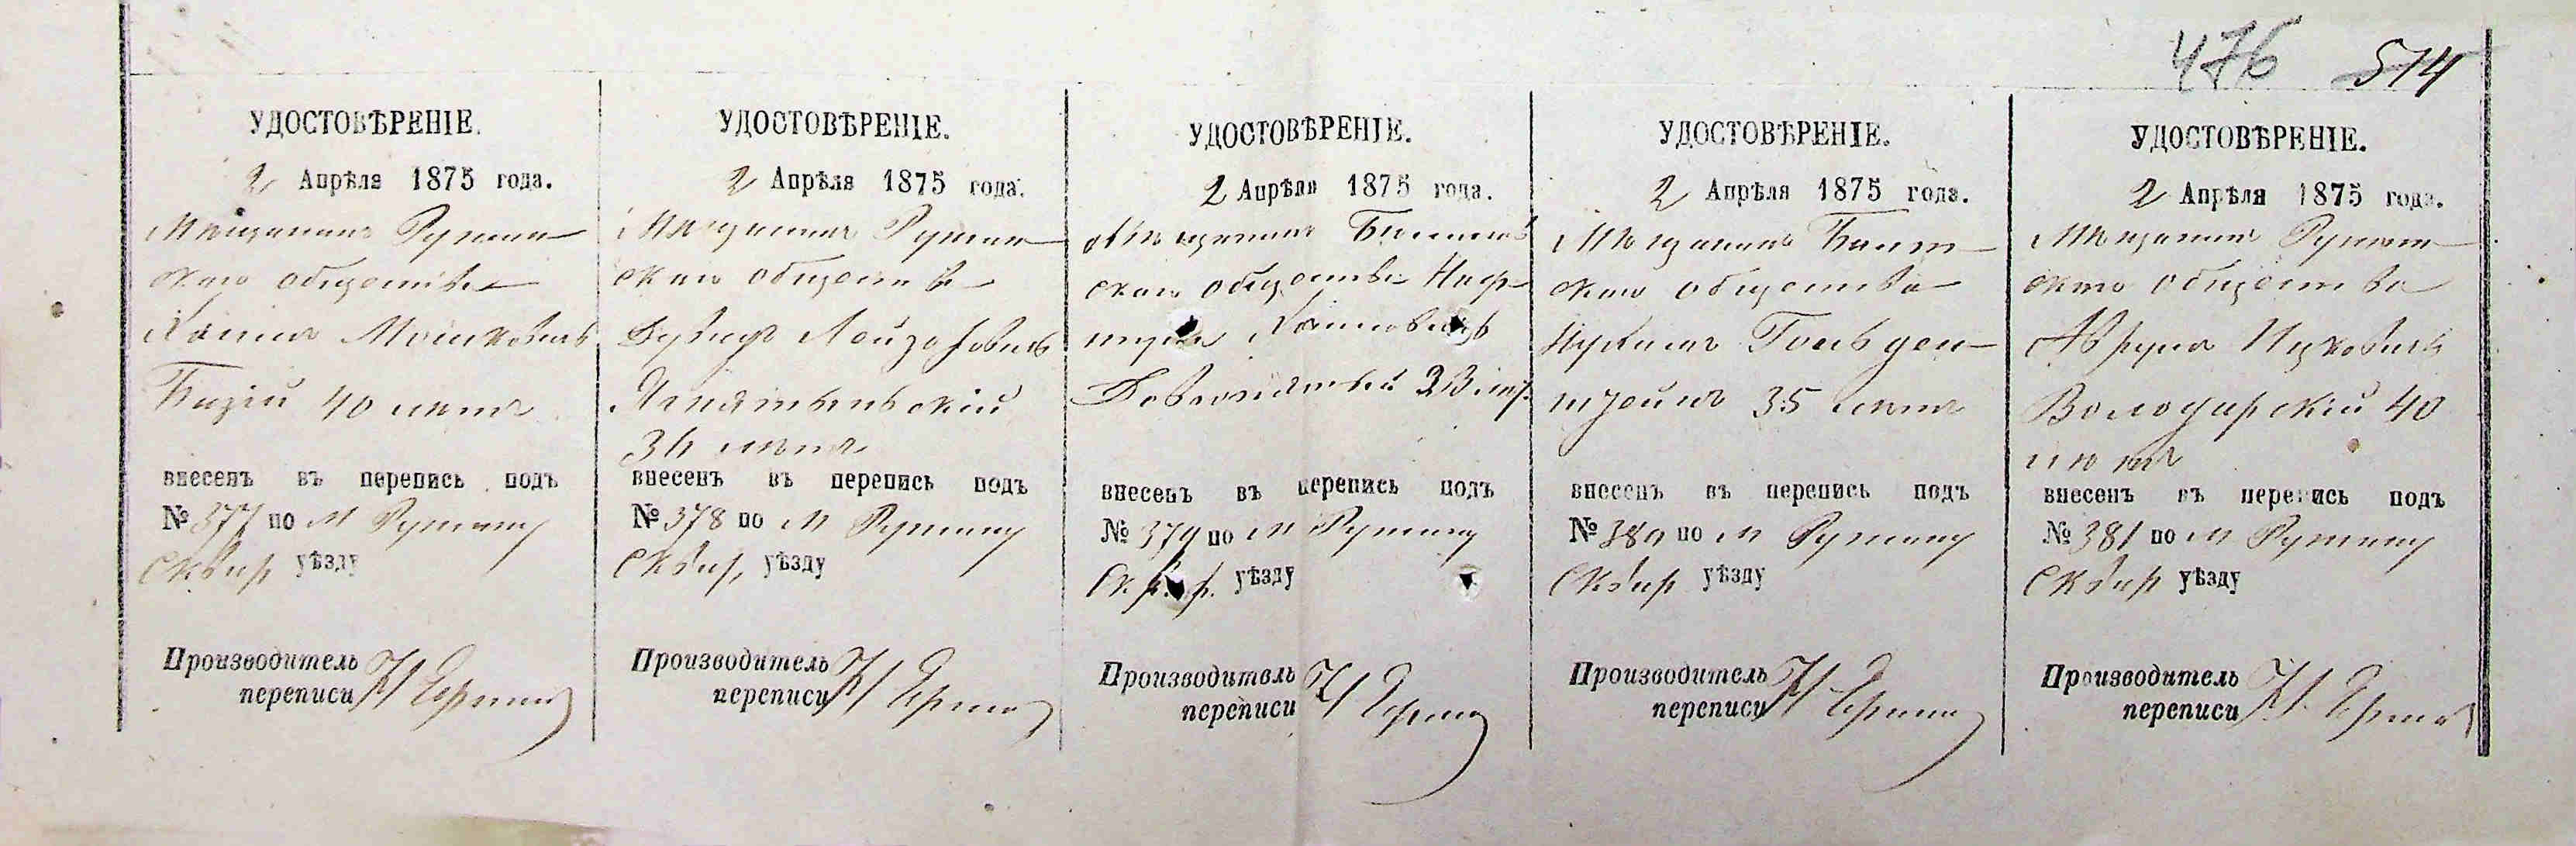 476 514
УДОСТОВѢРЕНІЕ.
2 Апрѣля 1875 года.
Мѣщанинъ Ружин
скаго общества
Хаимъ Мошковичъ
Бизій 40 лѣтъ
внесенъ въ перепись подъ
№ 377 по м Ружину
Сквир уѣзду
Производитель
переписи
УДОСТОВѢРЕНІЕ.
2 Апрѣля 1875 года.
Мѣщанинъ Ружин
скаго общества
Дувидъ Лейзоровичъ
34 лѣтъ
внесенъ въ перепись подъ
№ 378 по м Ружину
Сквир, уѣзду
Производитель
переписи
УДОСТОВѢРЕНІЕ.
2 Апрѣля 1875 года.
Мѣщанинъ
скаго общества Наф
тула Хаимовичъ
внесенъ въ перепись подъ
№ 379 по м Ружину
Сквир. уѣзду
Производитель
переписи
УДОСТОВѢРЕНІЕ.
2 Апрѣля 1875 года.
Мѣщанинъ
скаго общества
Нухимъ Гольден
штейнъ 35 лѣтъ
внесенъ въ перепись подъ
№ 380 по м Ружину
Сквир уѣзду
Производитель
переписи
УДОСТОВѢРЕНІЕ.
2 Апрѣля 1875 года.
Мѣщанинъ Ружин
скаго общества
Аврумъ Ицковичъ
Володарскій 40
лѣтъ
внесенъ въ перепись подъ
№ 381 по м Ружину
Сквир уѣзду
Производитель
переписи